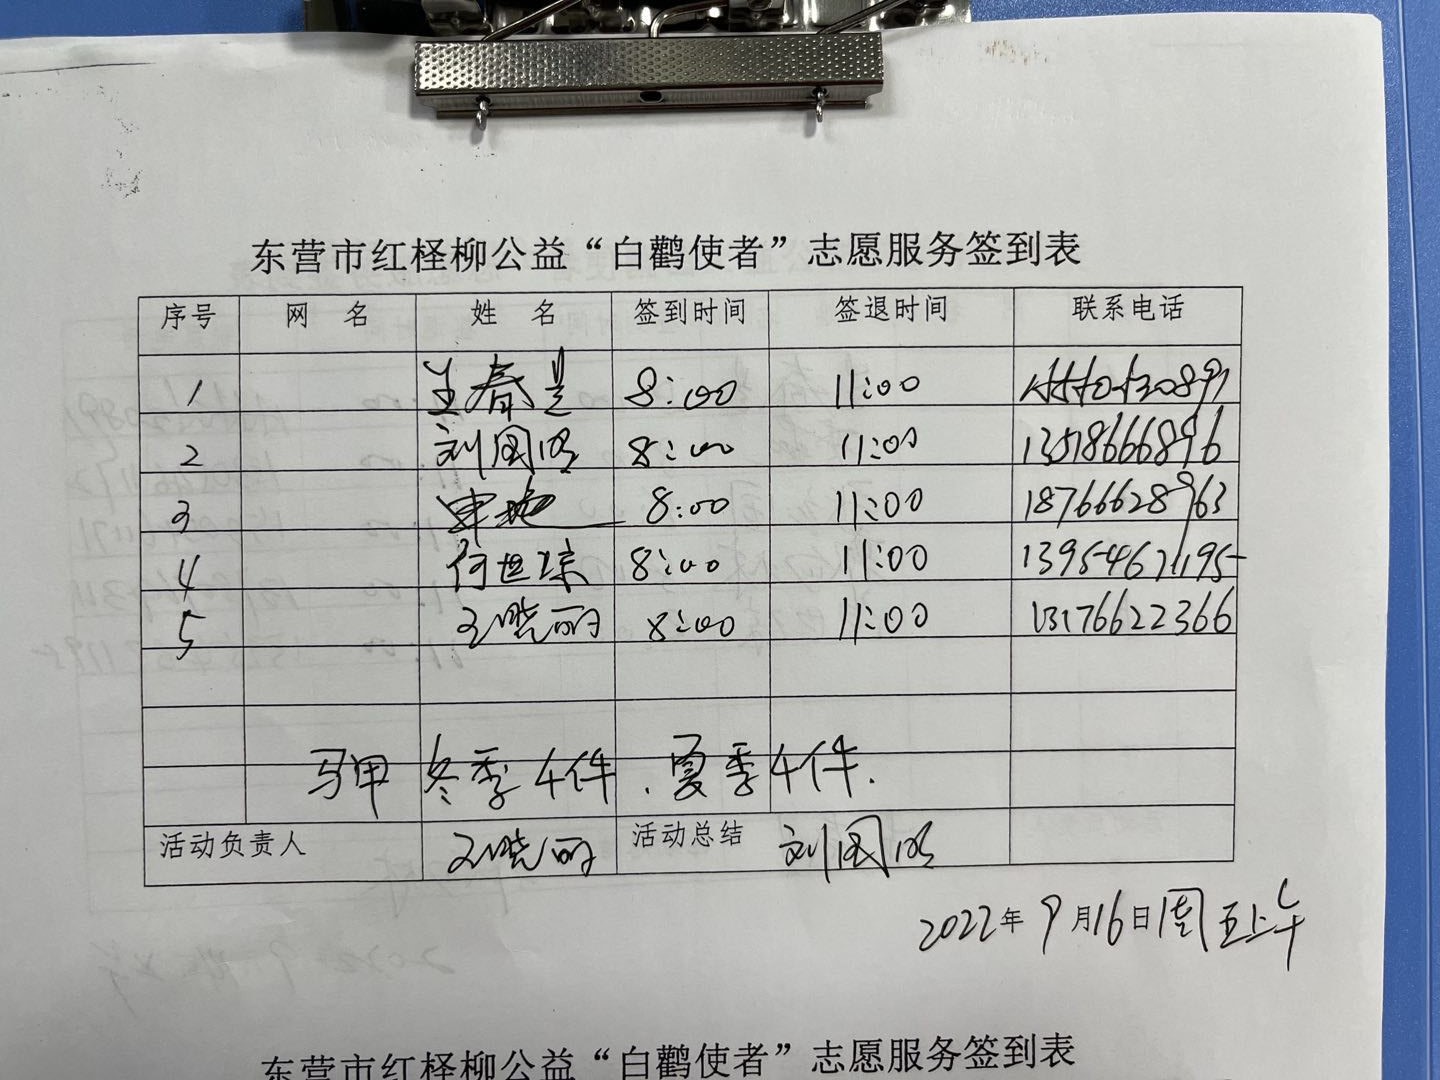 东营市红柽柳公益“白鹳使者”志愿服务签到表
序号 网 名 姓 名 签到时间 签退时间 联系电话
1 8:00 11:00
2 刘国明 8:00 11:00 13518666896
3 8:00 11:00 18766628963
4 何世琮 8:00 11:00 13954671195
5 王晓丽 8:00 11:00 13176622366
马甲 冬季4件.夏季4件.
活动负责人 王晓丽 活动总结 刘国明
2022年9月16日周五上午
东营市红柽柳公益“白鹳使者”志愿服务签到表